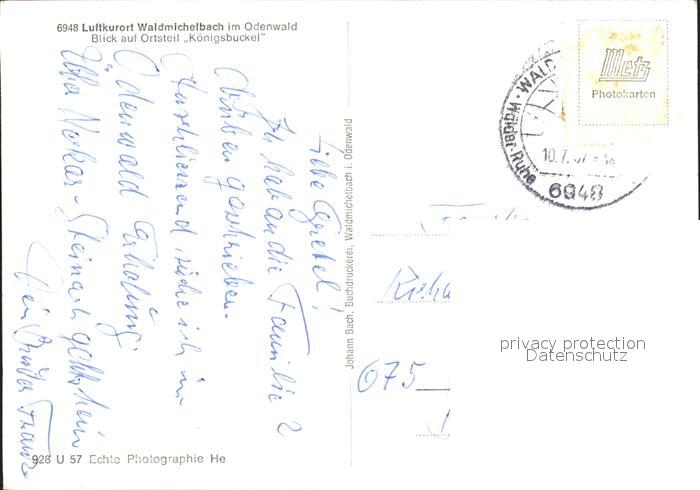 6948 Luftkurort Waldmichelbach im Odenwald
Blick auf Ortsteil „Königsbuckel"
Liebe Gretel!
Ich hab an die Familie 2
Karten geschrieben.
Anschliessend suche ich im
Odenwald Erholung.
Über Neckar-Steinach geht's heim
Dein Bruder Franz
928 U 57 Echte Photographie He
Johann Bach, Buchdruckerei, Waldmichelbach i. Odenwald
Metz
Photokarten
WALD
Wälder-Ruhe
10.7.
6948
675
privacy protection
Datenschutz